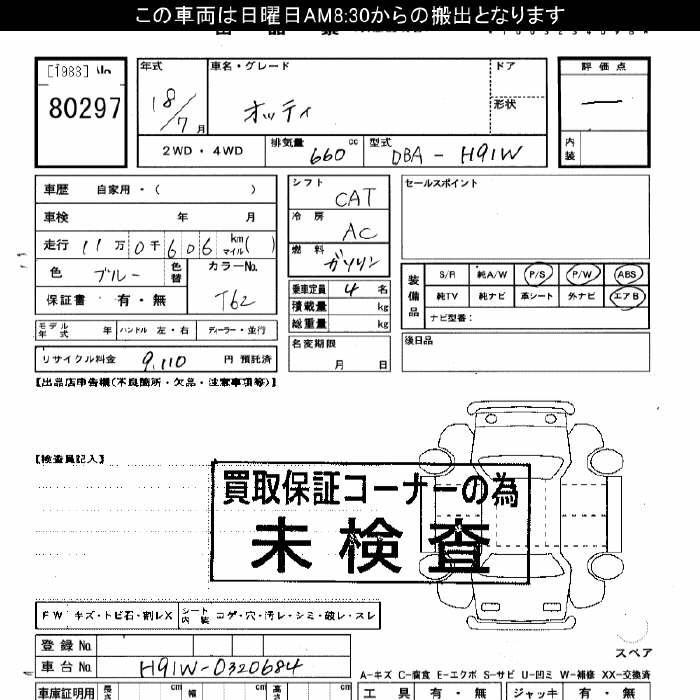 この車両は日曜日AM8:30からの搬出となります
[1983]
80297
年式 車名・グレード ドア 評価点
18/7月 オッティ 形状 —
2WD・4WD 排気量 660 cc 型式 DBA-H91W 内装
車歴 自家用・( )
シフト CAT
セールスポイント
車検 年 月
冷房 AC
走行 11万0千606 km マイル( )
燃料 ガソリン
色 ブルー 色替 カラーNo. T62
装備品 S/R 純A/W P/S P/W ABS
純TV 純ナビ 革シート 外ナビ エアB
ナビ型番:
保証書 有・無
乗車定員 4 名
積載量 kg
総重量 kg
モデル年式 年 ハンドル 左・右 ディーラー・並行
名変期限 月 日
後日品
リサイクル料金 9,110 円 預託済
【出品店申告欄(不良箇所・欠品・注意事項等)】
【検査員記入】
買取保証コーナーの為
未検査
FW キズ・トビ石・割レX シート内装 コゲ・穴・汚レ・シミ・破レ・スレ
スペア
登録No.
車台No. H91W-0320684
A-キズ C-腐食 E-エクボ S-サビ U-凹ミ W-補修 XX-交換済
車庫証明用 長さ cm 幅 cm 高さ cm 工具 有・無 ジャッキ 有・無